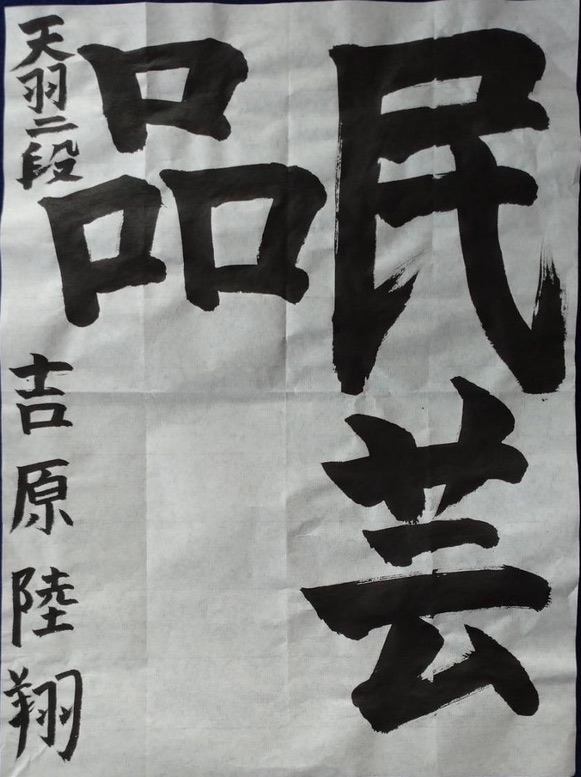 民芸
品
天羽二段
吉原陸翔